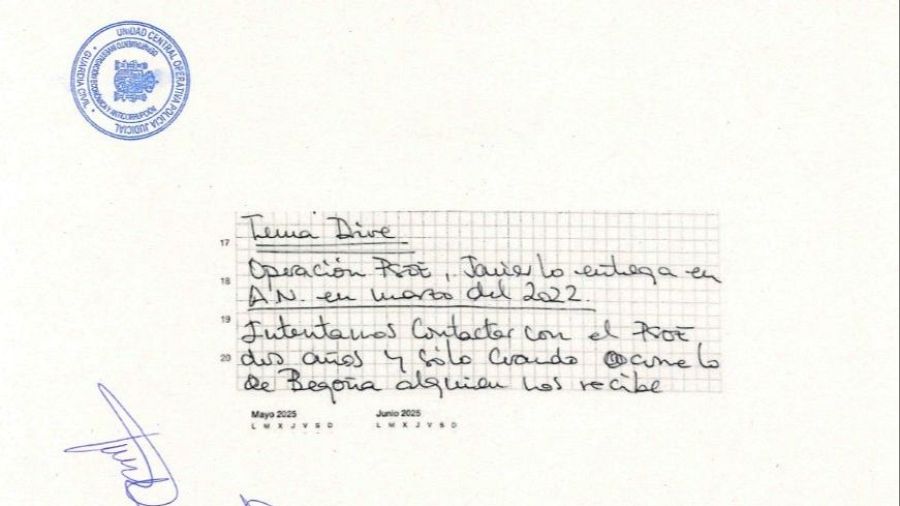 UNIDAD CENTRAL OPERATIVA POLICIA JUDICIAL
GUARDIA CIVIL
Tema Dive
17
Operación PSOE, Javier lo entrega en
18
A.N. en marzo del 2022.
19
Intentamos Contactar con el PSOE
20
dos años y sólo cuando ocurre lo
de Begoña alguien nos recibe
Mayo 2025 Junio 2025
L M X J V S D L M X J V S D